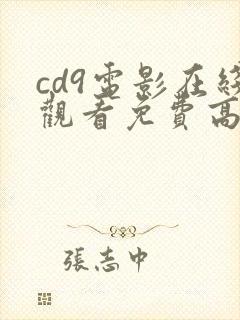 cd9電影在綫
觀看免費高
張志中